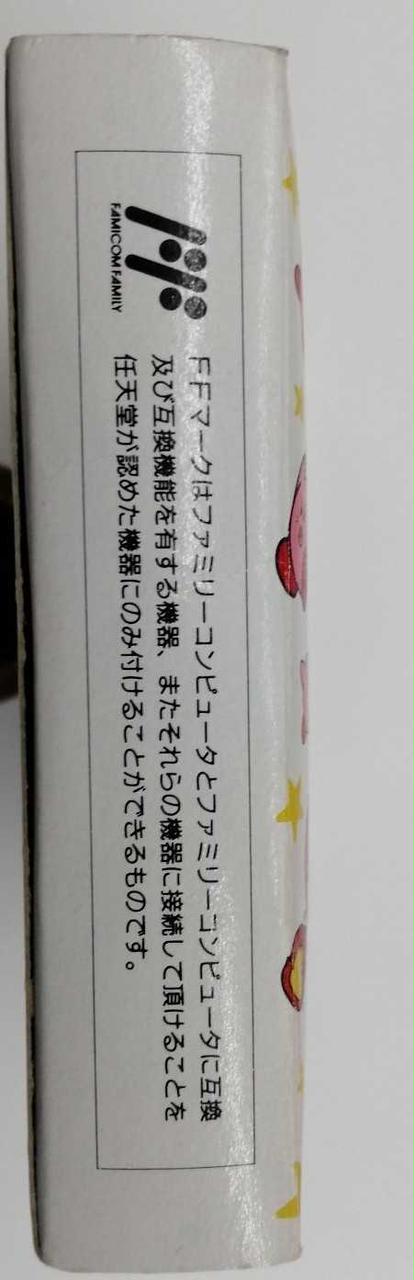 FAMICOM FAMILY
FFマークはファミリーコンピュータとファミリーコンピュータに互換
及び互換機能を有する機器、またそれらの機器に接続して頂けることを
任天堂が認めた機器にのみ付けることができるものです。